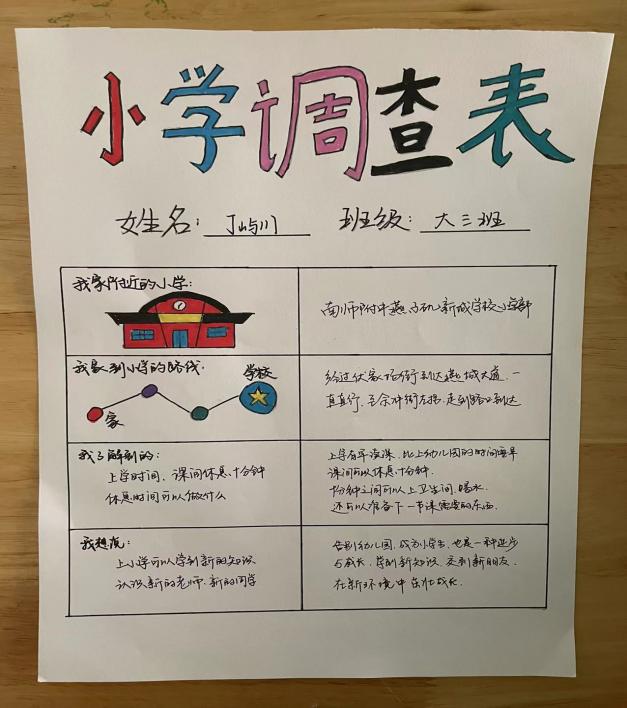 小学调查表
姓名: 丁屿川 班级: 大三班
我家附近的小学:
南师附中燕子矶新城学校小学部
我家到小学的路线.
学校
家
经过伏家场街到达燕城大道.一
直直行.至佘冲街左拐.走到路口到达
我了解到的:
上学时间, 课间休息十分钟
休息时间可以做什么
上学有早读课.比上幼儿园的时间要早
课间可以休息十分钟.
十分钟之间可以上卫生间.喝水.
还可以准备下一节课需要的东西.
我想说:
上小学可以学到新的知识
认识新的老师.新的同学
告别幼儿园,成为小学生,也是一种进步
与成长.学到新知识.交到新朋友.
在新环境中茁壮成长.